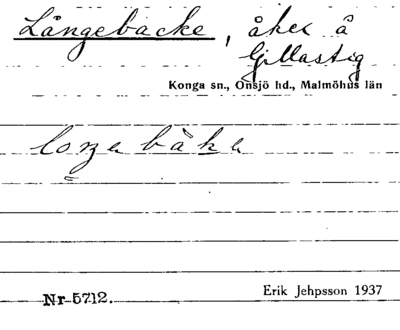 Långebacke, åker å
Gillastig
Konga sn., Onsjö hd., Malmöhus län
båka
Erik Jehpsson 1937
Nr 5712.